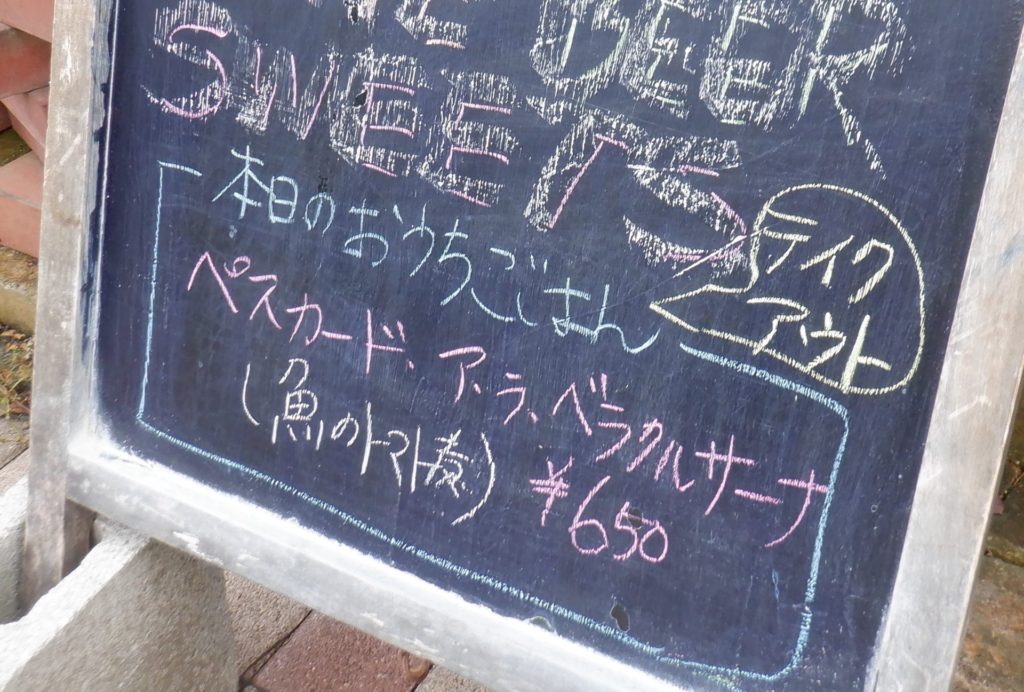 BEER
SWEETS
本日のおうちごはん
テイク
アウト
ペスカード、ア、ラ、ベラクルサーナ
(魚のトマト煮)
¥650